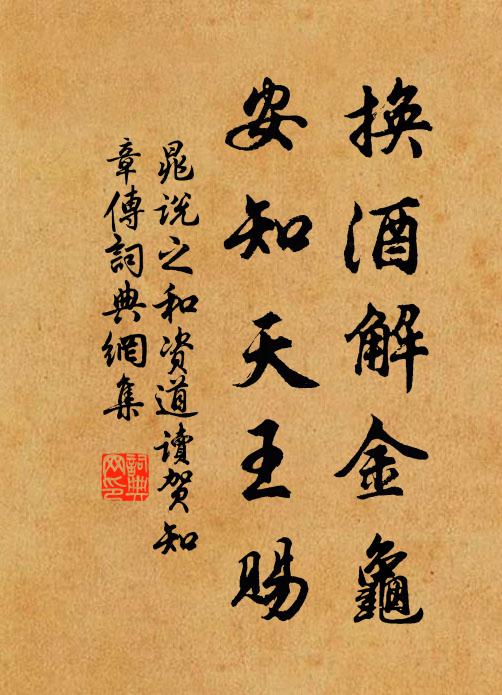 换酒解金龜
安知天王賜
晁说之和资道讀贺知
章傳詞典網集
詞典
网印